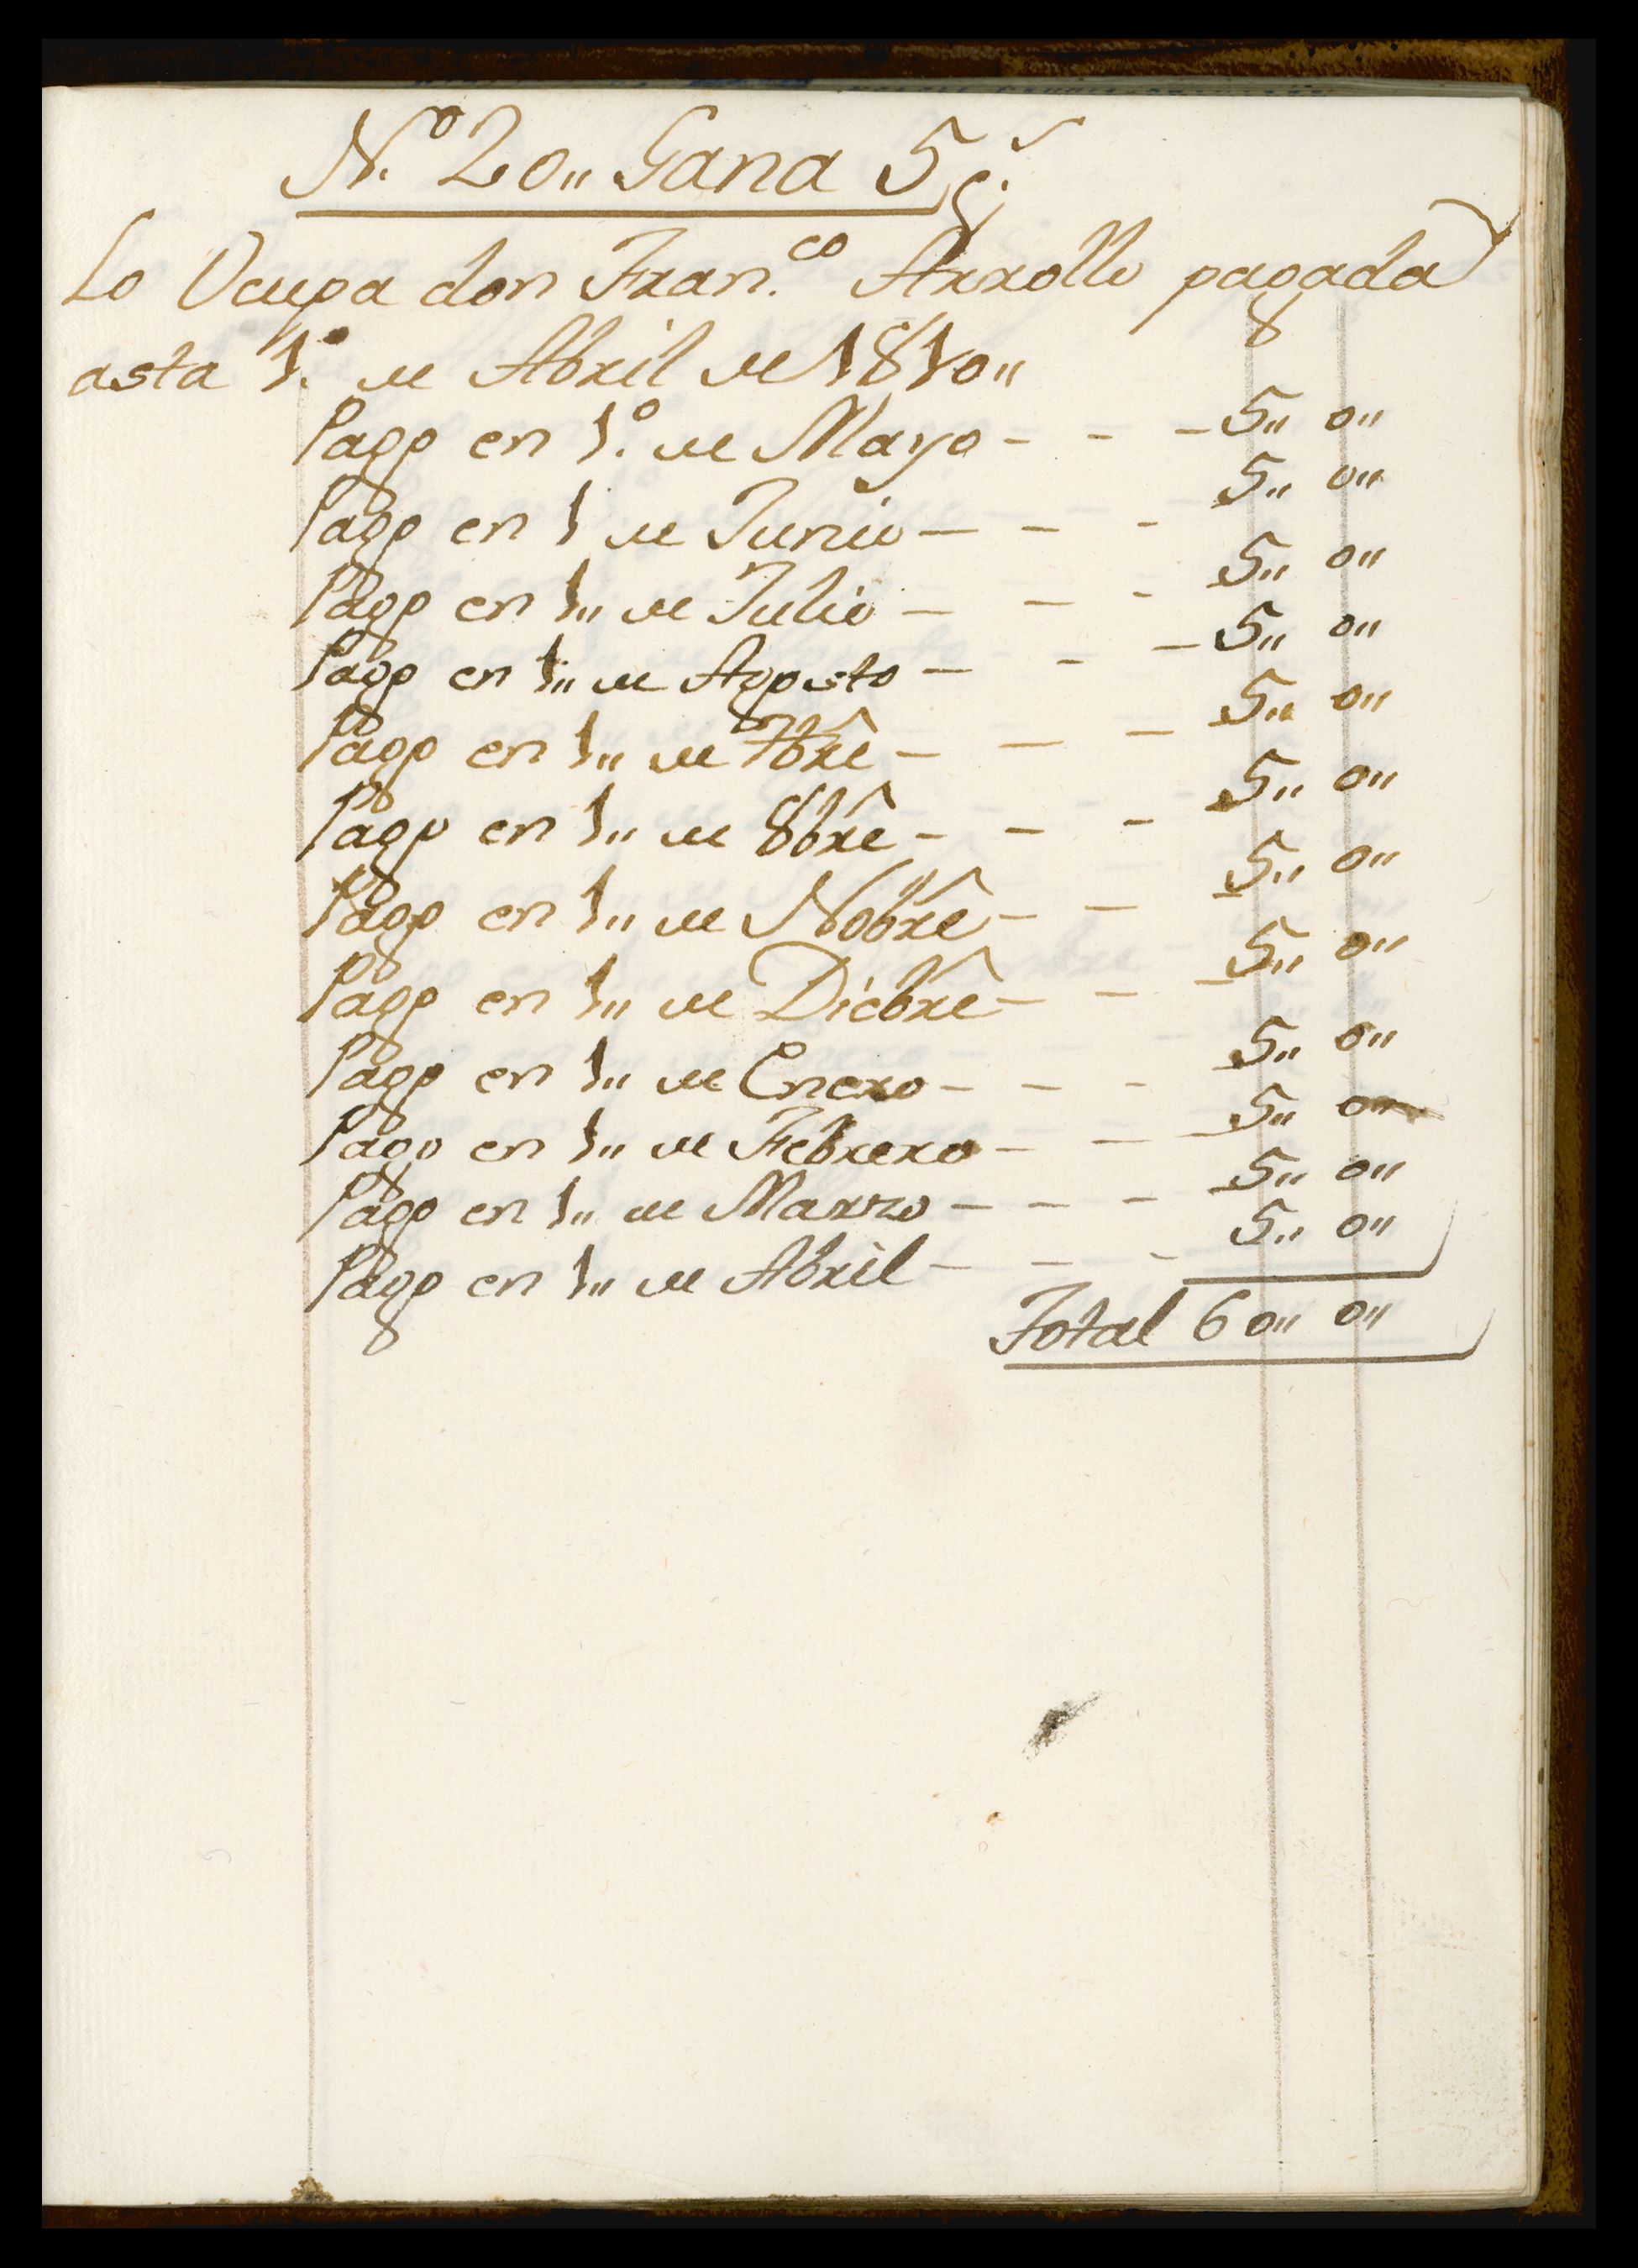 N.º 20,, Gana 5 p.s
Lo Ocupa don Fran.co Arrollo pagada
asta 1.º de Abril de 1810,,
Pago en 1.º de Mayo - - - 5,, 0,,
Pago en 1 de Junio - - - 5,, 0,,
Pago en 1,, de Julio - - - 5,, 0,,
Pago en 1,, de Agosto - - - 5,, 0,,
Pago en 1,, de 7bre - - - 5,, 0,,
Pago en 1,, de 8bre - - - 5,, 0,,
Pago en 1,, de Nobre - - 5,, 0,,
Pago en 1,, de Dicbre - - - 5,, 0,,
Pago en 1,, de Enero - - - 5,, 0,,
Pago en 1,, de Febrero - - - 5,, 0,,
Pago en 1,, de Marzo - - - 5,, 0,,
Pago en 1,, de Abril - - - 5,, 0,,
Total 60,, 0,,